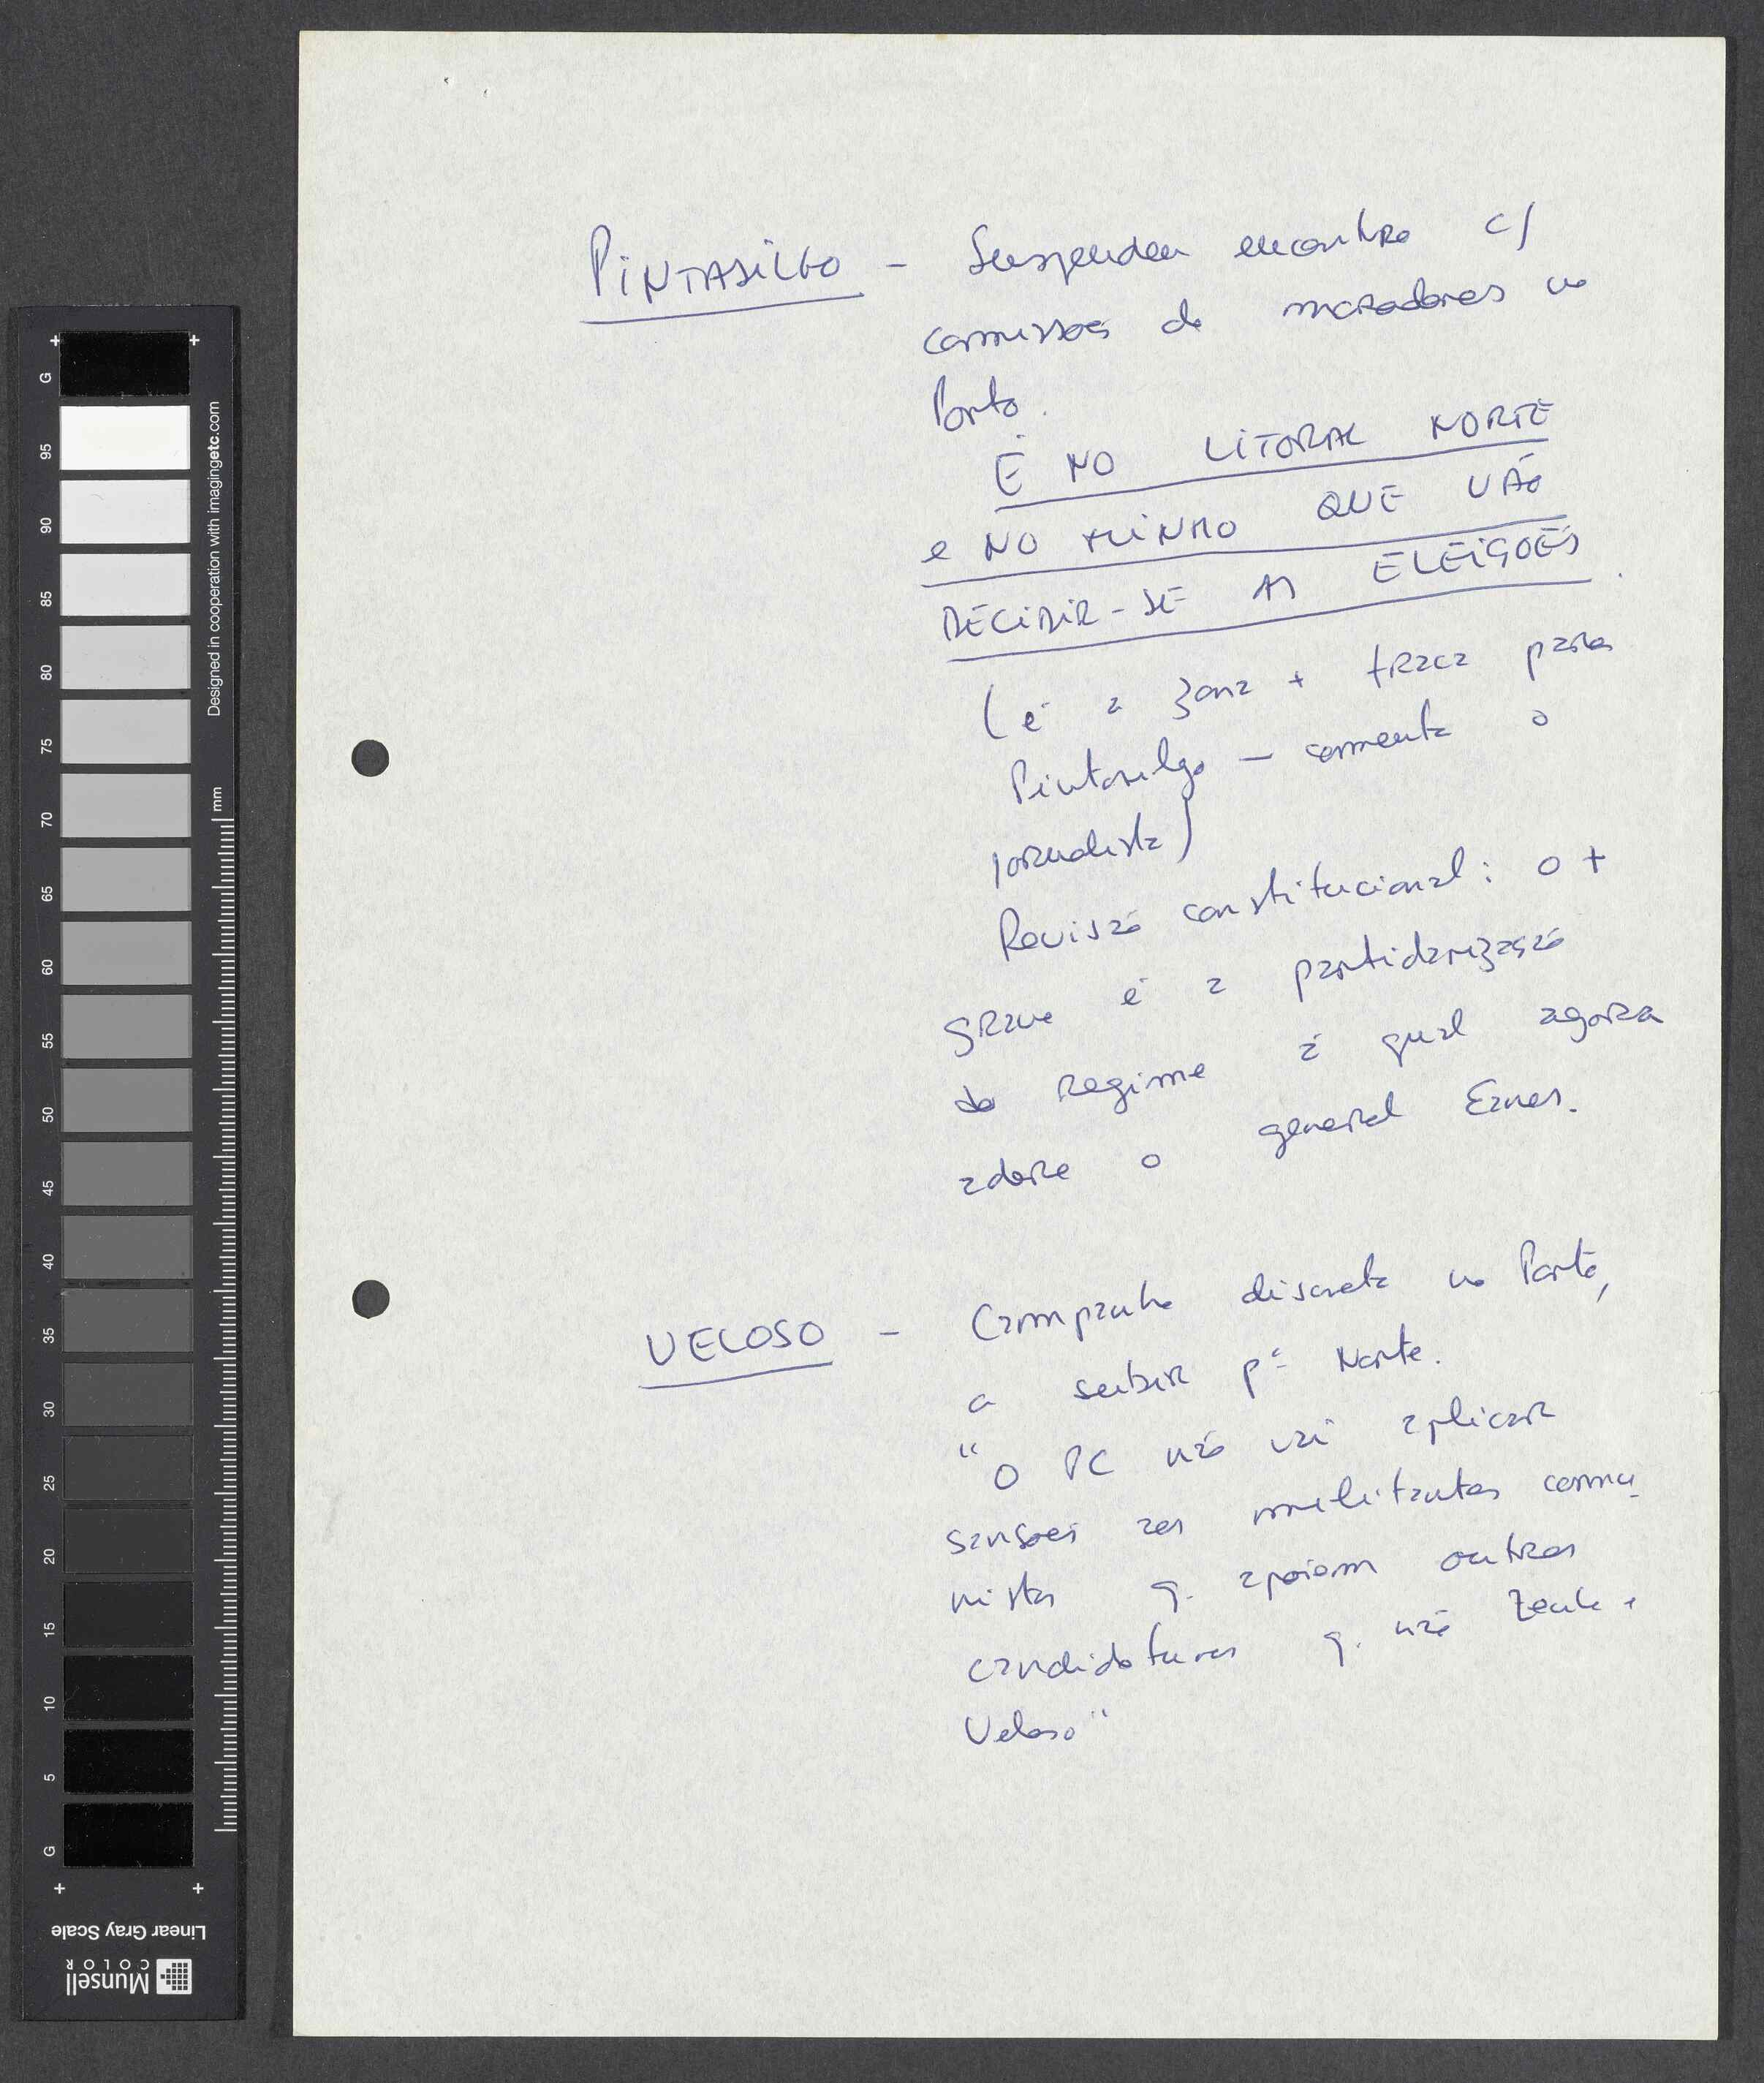 PINTASILGO – Suspendeu encontro c/
comissões de moradores no
Porto.
É NO LITORAL NORTE
e NO MINHO QUE VÃO
DECIDIR-SE AS ELEIÇÕES.
(é a zona + fraca para
Pintasilgo – comenta o
jornalista)
Revisão constitucional: o +
grave é a partidarização
do regime à qual agora
adere o general Eanes.
VELOSO – Campanha discreta no Porto,
a subir pª Norte.
"O PC não vai aplicar
sansões aos militantes comu-
nistas q. apoiam outras
candidaturas q. não Zenha e
Veloso"
G
95
90
85
80
75
70
65
60
55
50
45
40
35
30
25
20
15
10
5
G
Designed in cooperation with imagingetc.com
mm
Linear Gray Scale
Munsell
COLOR